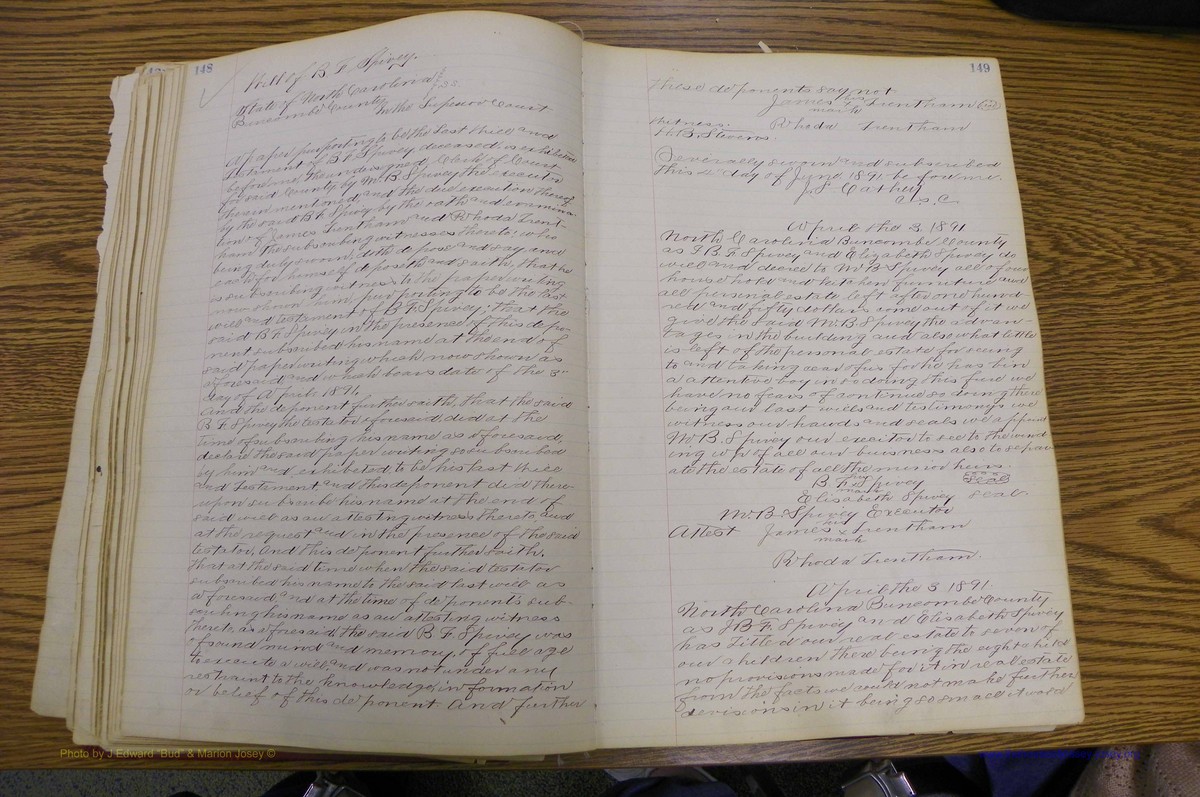 148
Will of B F Spivey.
State of North Carolina
Buncombe County In the Superior Court
A paper purporting to be the last Will and
testament of B F Spivey, deceased is exhibited
before me, the undersigned, Clerk of Court
for said County by M. B Spivey the executor
therein mentioned, and the due execution thereof
by the said B F Spivey by the oath and examina-
tion of James Trentham and Rhoda Trent-
ham the subscribing witnesses thereto; who
being duly sworn, doth depose and say, and
each for himself deposeth and saith, that he
is subscribing witness to the paper writing
now shown him, purporting to be the last
will and testament of B F Spivey; that the
said B F. Spivey in the presence of this depo-
nent subscribed his name at the end of
said paper writing which now shown as
aforesaid, and which bears date of the 3"
day of April 1891.
And the deponent further saith, that the said
B F. Spivey the testator aforesaid, did at the
time of subscribing his name as aforesaid,
declare the said paper writing so subscribed
by him and exhibited to be his last Will
and Testament, and this deponent did there-
upon subscribe his name at the end of
said will as an attesting witness thereto, and
at the request and in the presence of the said
testator. And this deponent further saith,
that at the said time when the said testator
subscribed his name to the said last will as
aforesaid and at the time of deponent's sub-
scribing his name as an attesting witness
thereto, as aforesaid, the said B F. Spivey was
of sound mind and memory, of full age
to execute a will, and was not under any
restraint to the knowledge, information
or belief of this deponent And further
149
these deponents say not
James his x mark Trentham
Witness. Rhoda Trentham
H. B. Stevens.
Severally sworn and subscribed
this 4" day of June 1891 before me.
J. L. Cathey
C. S. C
April the 3, 1891
North Carolina Buncombe County
as I B. F. Spivey and Elizabeth Spivey do
will and decree to M B Spivey all of our
house hold and kitchen furniture and
all personal estate left after one hund
red and fifty dollars come out of it we
give the said M. B. Spivey the advan
tages in the building and also what little
is left of the personal estate for seeing
to and taking care of us for he has bin
a attentive boy in so doing this fare we
have no fears of continue so doing there
being our last wills and testimonys we
witness our hands and seals we appoint
M B. Spivey our execitor to see to the wind
ing up of all our business also to separ
ate the estate of all the minor heirs.
B F. his mark Spivey Seal
Elisabeth Spivey seal.
M. B. Spivey Executor
Attest James his x mark Trentham
Rhoda Trentham.
April the 3 1891
North Carolina Buncombe County
as I B F. Spivey and Elisabeth Spivey
has Titled our real estate to seven of
our children there being the eight child
no provisions made for it in real estate
from the facts we could not make further
devisions in it being so small it was
Photo by J Edward "Bud" & Marion Josey ©